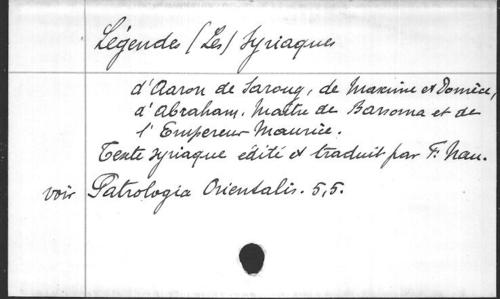 Légendes (Les) Syriaques
d'Aaron de Saroug, de Maxime et Domèce,
d'Abraham, Maître de Barsoma et de
l'Empereur Maurice.
Texte syriaque édité et traduit par F. Nau.
voir Patrologia Orientalis. 5,5.